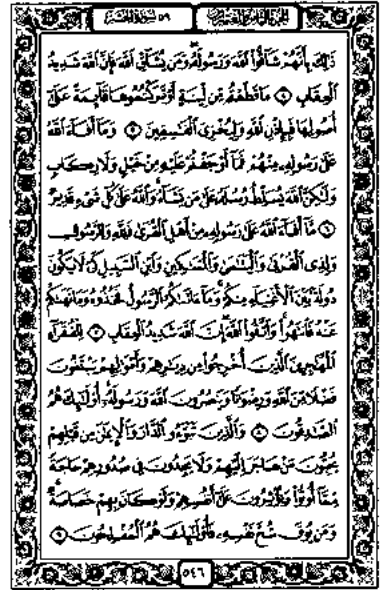 الجزء الثامن والعشرون ٥٩ سورة الحشر
ذَٰلِكَ بِأَنَّهُمْ شَاقُّوا۟ ٱللَّهَ وَرَسُولَهُۥ وَمَن يُشَآقِّ ٱللَّهَ فَإِنَّ ٱللَّهَ شَدِيدُ
ٱلْعِقَابِ ٤ مَا قَطَعْتُم مِّن لِّينَةٍ أَوْ تَرَكْتُمُوهَا قَآئِمَةً عَلَىٰٓ
أُصُولِهَا فَبِإِذْنِ ٱللَّهِ وَلِيُخْزِىَ ٱلْفَٰسِقِينَ ٥ وَمَآ أَفَآءَ ٱللَّهُ
عَلَىٰ رَسُولِهِۦ مِنْهُمْ فَمَآ أَوْجَفْتُمْ عَلَيْهِ مِنْ خَيْلٍ وَلَا رِكَابٍ
وَلَٰكِنَّ ٱللَّهَ يُسَلِّطُ رُسُلَهُۥ عَلَىٰ مَن يَشَآءُ وَٱللَّهُ عَلَىٰ كُلِّ شَىْءٍ قَدِيرٌ
٦ مَّآ أَفَآءَ ٱللَّهُ عَلَىٰ رَسُولِهِۦ مِنْ أَهْلِ ٱلْقُرَىٰ فَلِلَّهِ وَلِلرَّسُولِ
وَلِذِى ٱلْقُرْبَىٰ وَٱلْيَتَٰمَىٰ وَٱلْمَسَٰكِينِ وَٱبْنِ ٱلسَّبِيلِ كَىْ لَا يَكُونَ
دُولَةًۢ بَيْنَ ٱلْأَغْنِيَآءِ مِنكُمْ وَمَآ ءَاتَىٰكُمُ ٱلرَّسُولُ فَخُذُوهُ وَمَا نَهَىٰكُمْ
عَنْهُ فَٱنتَهُوا۟ وَٱتَّقُوا۟ ٱللَّهَ إِنَّ ٱللَّهَ شَدِيدُ ٱلْعِقَابِ ٧ لِلْفُقَرَآءِ
ٱلْمُهَٰجِرِينَ ٱلَّذِينَ أُخْرِجُوا۟ مِن دِيَٰرِهِمْ وَأَمْوَٰلِهِمْ يَبْتَغُونَ
فَضْلًا مِّنَ ٱللَّهِ وَرِضْوَٰنًا وَيَنصُرُونَ ٱللَّهَ وَرَسُولَهُۥٓ أُو۟لَٰٓئِكَ هُمُ
ٱلصَّٰدِقُونَ ٨ وَٱلَّذِينَ تَبَوَّءُو ٱلدَّارَ وَٱلْإِيمَٰنَ مِن قَبْلِهِمْ
يُحِبُّونَ مَنْ هَاجَرَ إِلَيْهِمْ وَلَا يَجِدُونَ فِى صُدُورِهِمْ حَاجَةً
مِّمَّآ أُوتُوا۟ وَيُؤْثِرُونَ عَلَىٰٓ أَنفُسِهِمْ وَلَوْ كَانَ بِهِمْ خَصَاصَةٌ
وَمَن يُوقَ شُحَّ نَفْسِهِۦ فَأُو۟لَٰٓئِكَ هُمُ ٱلْمُفْلِحُونَ ٩
٥٤٦